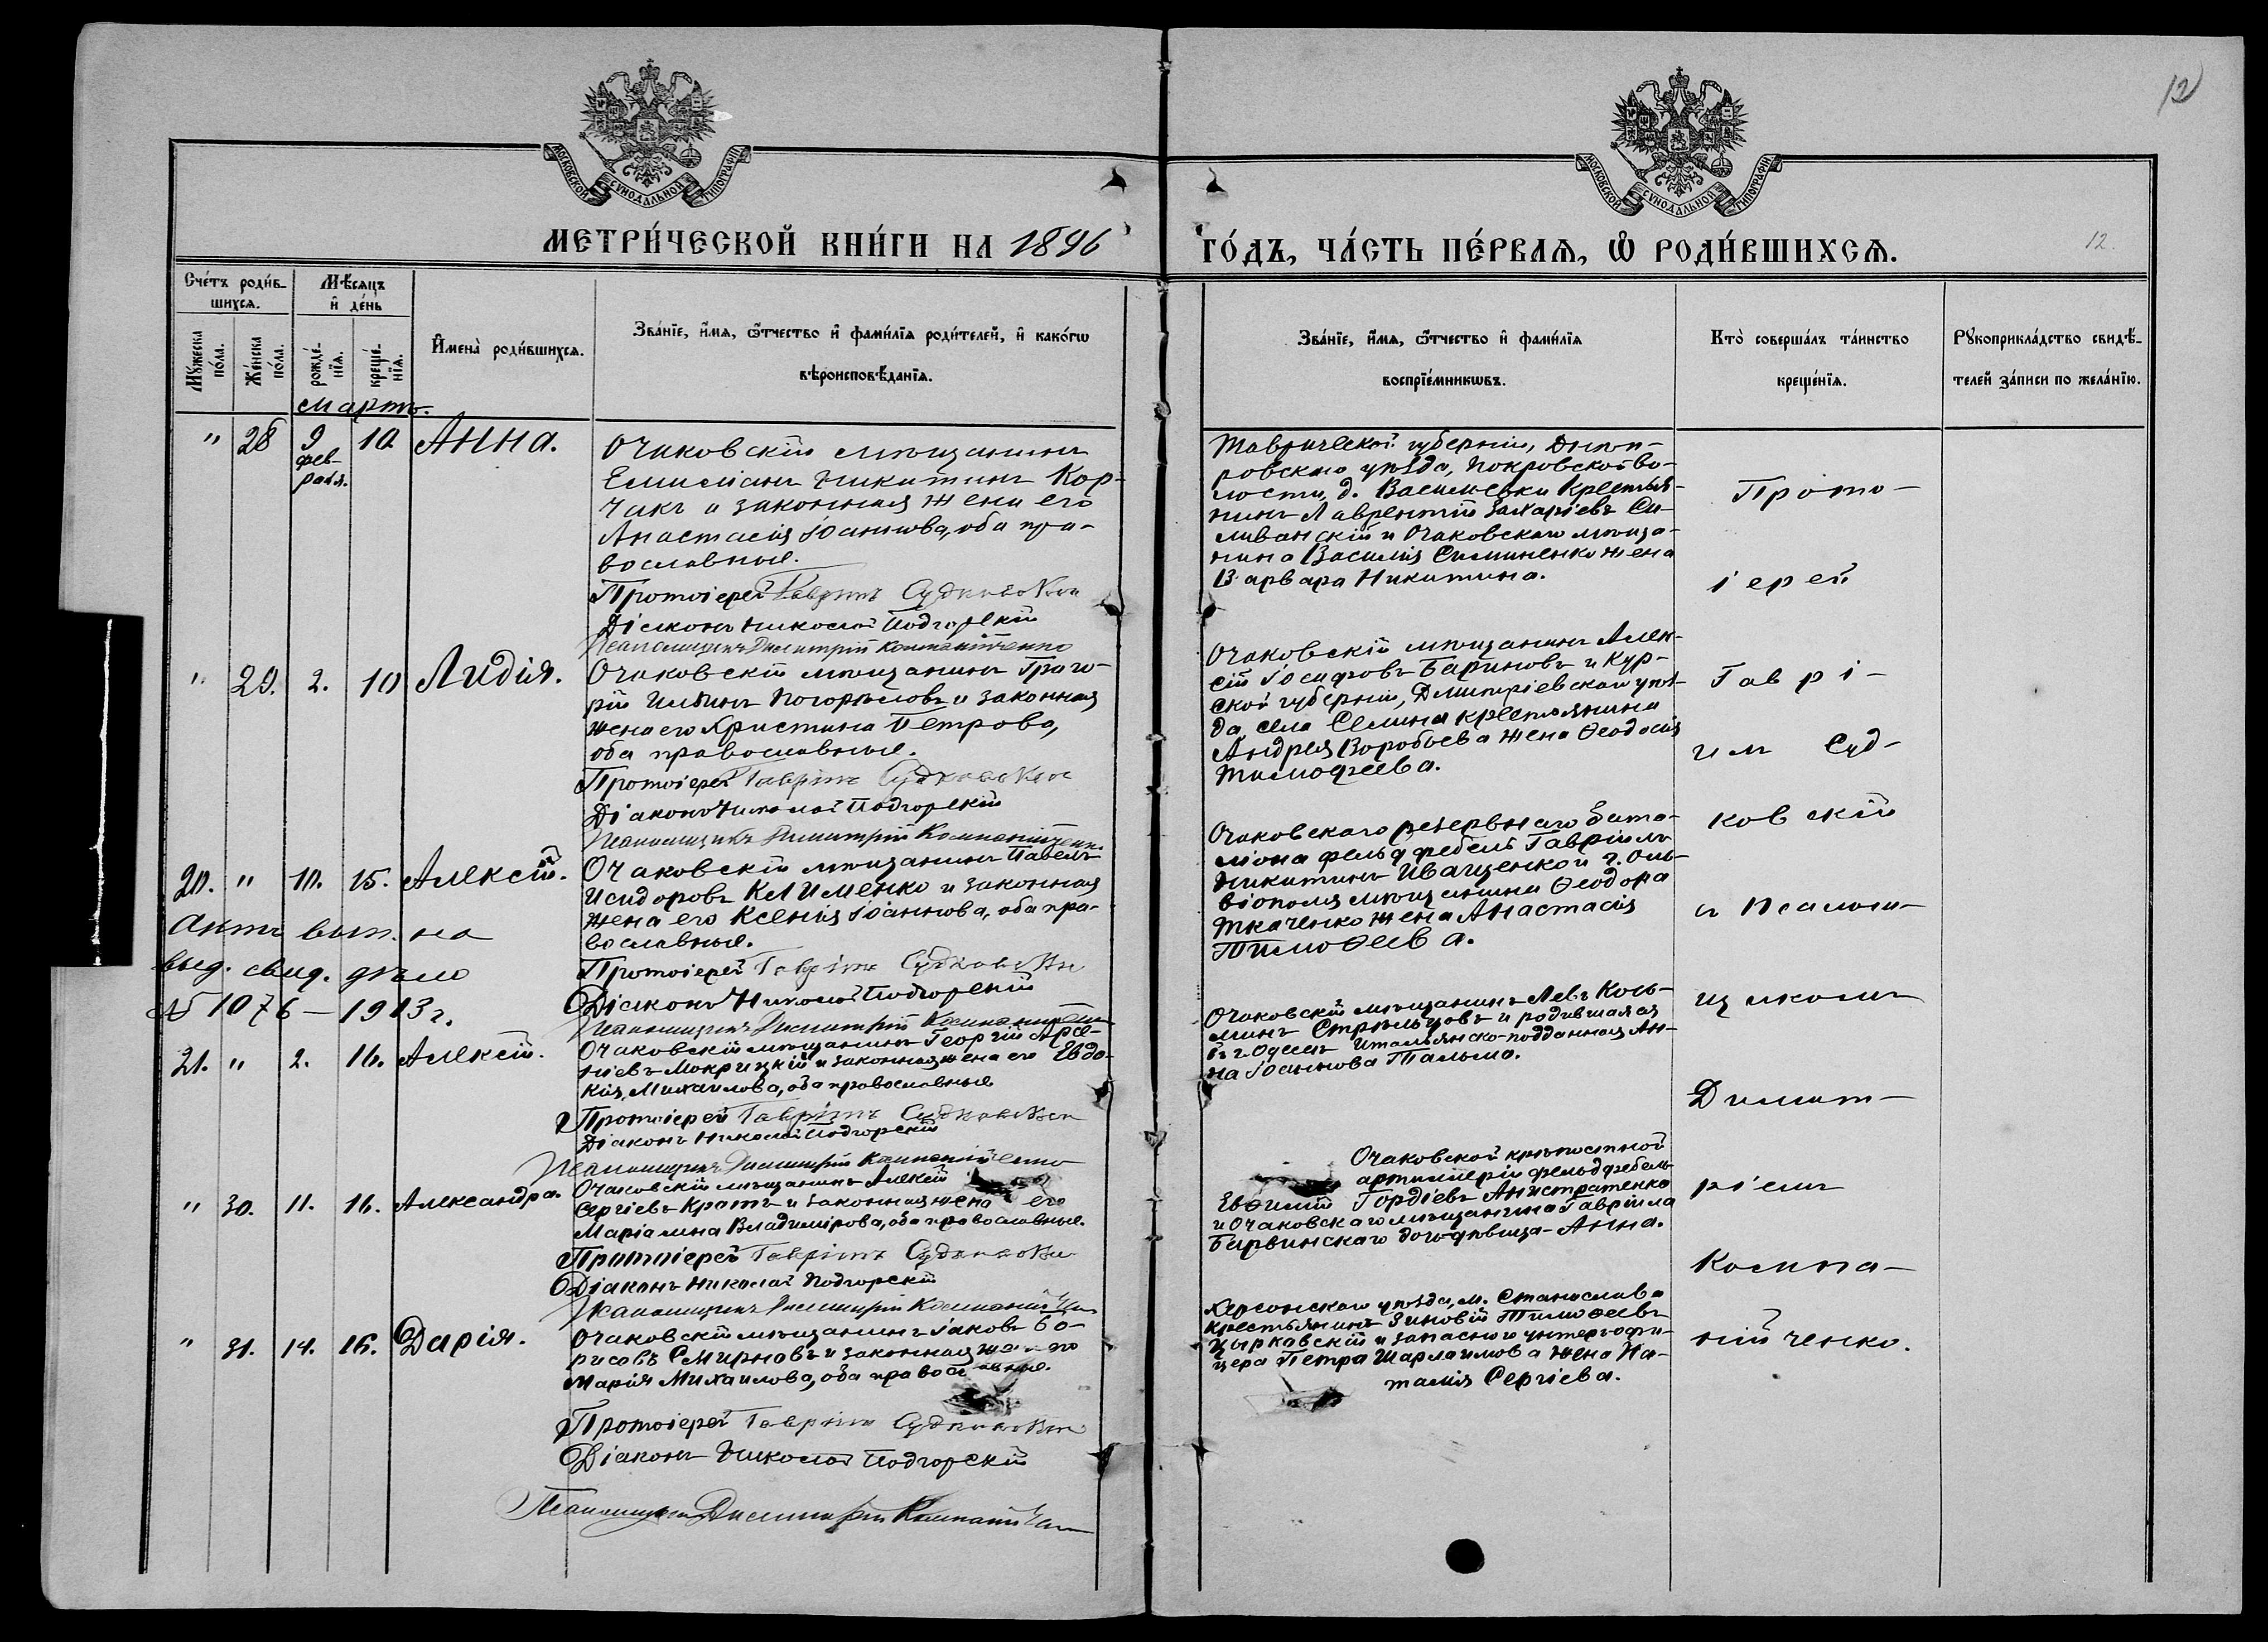 12
МОСКОВСКОЙ СѴНОДАЛЬНОЙ ТИПОГРАФІИ
МОСКОВСКОЙ СѴНОДАЛЬНОЙ ТИПОГРАФІИ
МЕТРИ́ЧЕСКОЙ КНИ́ГИ НА 1896
ГО́ДЪ, ЧА́СТЬ ПЕ́РВАЯ, Ѡ РОДИ́ВШИХСЯ.
12.
Сче́тъ роди́в-
шихся.
Мѣ́сяцъ
и҆ де́нь
Мꙋ́жеска
по́ла.
Же́нска
по́ла.
рожде́-
нїя.
креще́-
нїя.
И҆мена̀ роди́вшихся.
Зва́нїе, и҆́мя, ѻ҆́тчество и҆ фами́лїя роди́телей, и҆ како́гѡ
вѣроисповѣ́данїя.
Зва́нїе, и҆́мя, ѻ҆́тчество и҆ фами́лїя
воспрїе́мникѡвъ.
Кто̀ соверша́лъ та́инство
креще́нїя.
Рꙋкоприкла́дство свидѣ́-
телей за́писи по жела́нїю.
Мартъ.
" 28 9 фев- раля. 10. Анна.
Очаковскій мѣщанинъ
Емиліанъ Никитинъ Кор-
чакъ и законная жена его
Анастасія Іоаннова, оба пра-
вославные.
Протоіерей Гавріилъ Судковскій
Діаконъ Николай Подгорскій
Псаломщикъ Димитрій Компанійченко
Таврической губерніи, Днѣп-
ровскаго уѣзда, Покровской во-
лости, д. Васильевки крестья-
нинъ Лаврентій Захаріевъ Си-
ливанскій и Очаковскаго мѣща-
нина Василія Симиненко жена
Варвара Никитина.
" 29. 2. 10 Лидія.
Очаковскій мѣщанинъ Григо-
рій Ильинъ Погорѣловъ и законная
жена его Христина Петрова,
оба православные.
Протоіерей Гавріилъ Судковскій
Діаконъ Николай Подгорскій
Псаломщикъ Димитрій Компанійченко
Очаковскій мѣщанинъ Алек-
сій Іосифовъ Бариновъ и Кур-
ской губерніи, Дмитріевскаго уѣз-
да, села Селина крестьянина
Андрея Воробьева жена Ѳеодосія
Тимофеева.
20. " 10. 15. Алексій.
Актъ вып. на
выд. свид. дѣло
№ 1076 — 1913 г.
Очаковскій мѣщанинъ Павелъ
Исидоровъ Клименко и законная
жена его Ксенія Іоаннова, оба пра-
вославные.
Протоіерей Гавріилъ Судковскій
Діаконъ Николай Подгорскій
Псаломщикъ Димитрій Компанійченко
Очаковскаго резервнаго бата-
ліона фельдфебель Гавріилъ
Никитинъ Иващенко и г. Оль-
віополя мѣщанина Ѳеодора
Ткаченко жена Анастасія
Тимоѳеева.
21. " 2. 16. Алексій.
Очаковскій мѣщанинъ Георгій Арсе-
ніевъ Мокрицкій и законная жена его Евдо-
кія Михаилова, оба православные
Протоіерей Гавріилъ Судковскій
Діаконъ Николай Подгорскій
Псаломщикъ Димитрій Компанійченко
Очаковскій мѣщанинъ Левъ Кось-
минъ Стрѣльцовъ и родившаяся
въ г. Одессѣ Итальянско-подданная Ан-
на Іоаннова Тальма.
" 30. 11. 16. Александра.
Очаковскій мѣщанинъ Алексій
Сергіевъ Кратъ и законная жена его
Маріамна Владимірова, оба православные.
Протоіерей Гавріилъ Судковскій
Діаконъ Николай Подгорскій
Псаломщикъ Димитрій Компанійченко
Очаковской крѣпостной
артиллеріи фельдфебель
Евѳимій Гордіевъ Анистратенко
и Очаковскаго мѣщанина Гавріила
Барвинскаго дочь дѣвица Анна.
" 31. 14. 16. Дарія.
Очаковскій мѣщанинъ Іаковъ Бо-
рисовъ Смирновъ и законная жена его
Марія Михаилова, оба православные.
Протоіерей Гавріилъ Судковскій
Діаконъ Николай Подгорскій
Псаломщикъ Димитрій Компанійченко
Херсонскаго уѣзда, м. Станислава
крестьянинъ Зиновій Тимоѳеевъ
Цырковскій и запаснаго унтеръ-офи-
цера Петра Шарлаимова жена На-
талія Сергіева.
Прото-
іерей
Гаврі-
илъ Суд-
ковскій
и псалом-
щикомъ
Димит-
ріемъ
Компа-
нійченко.